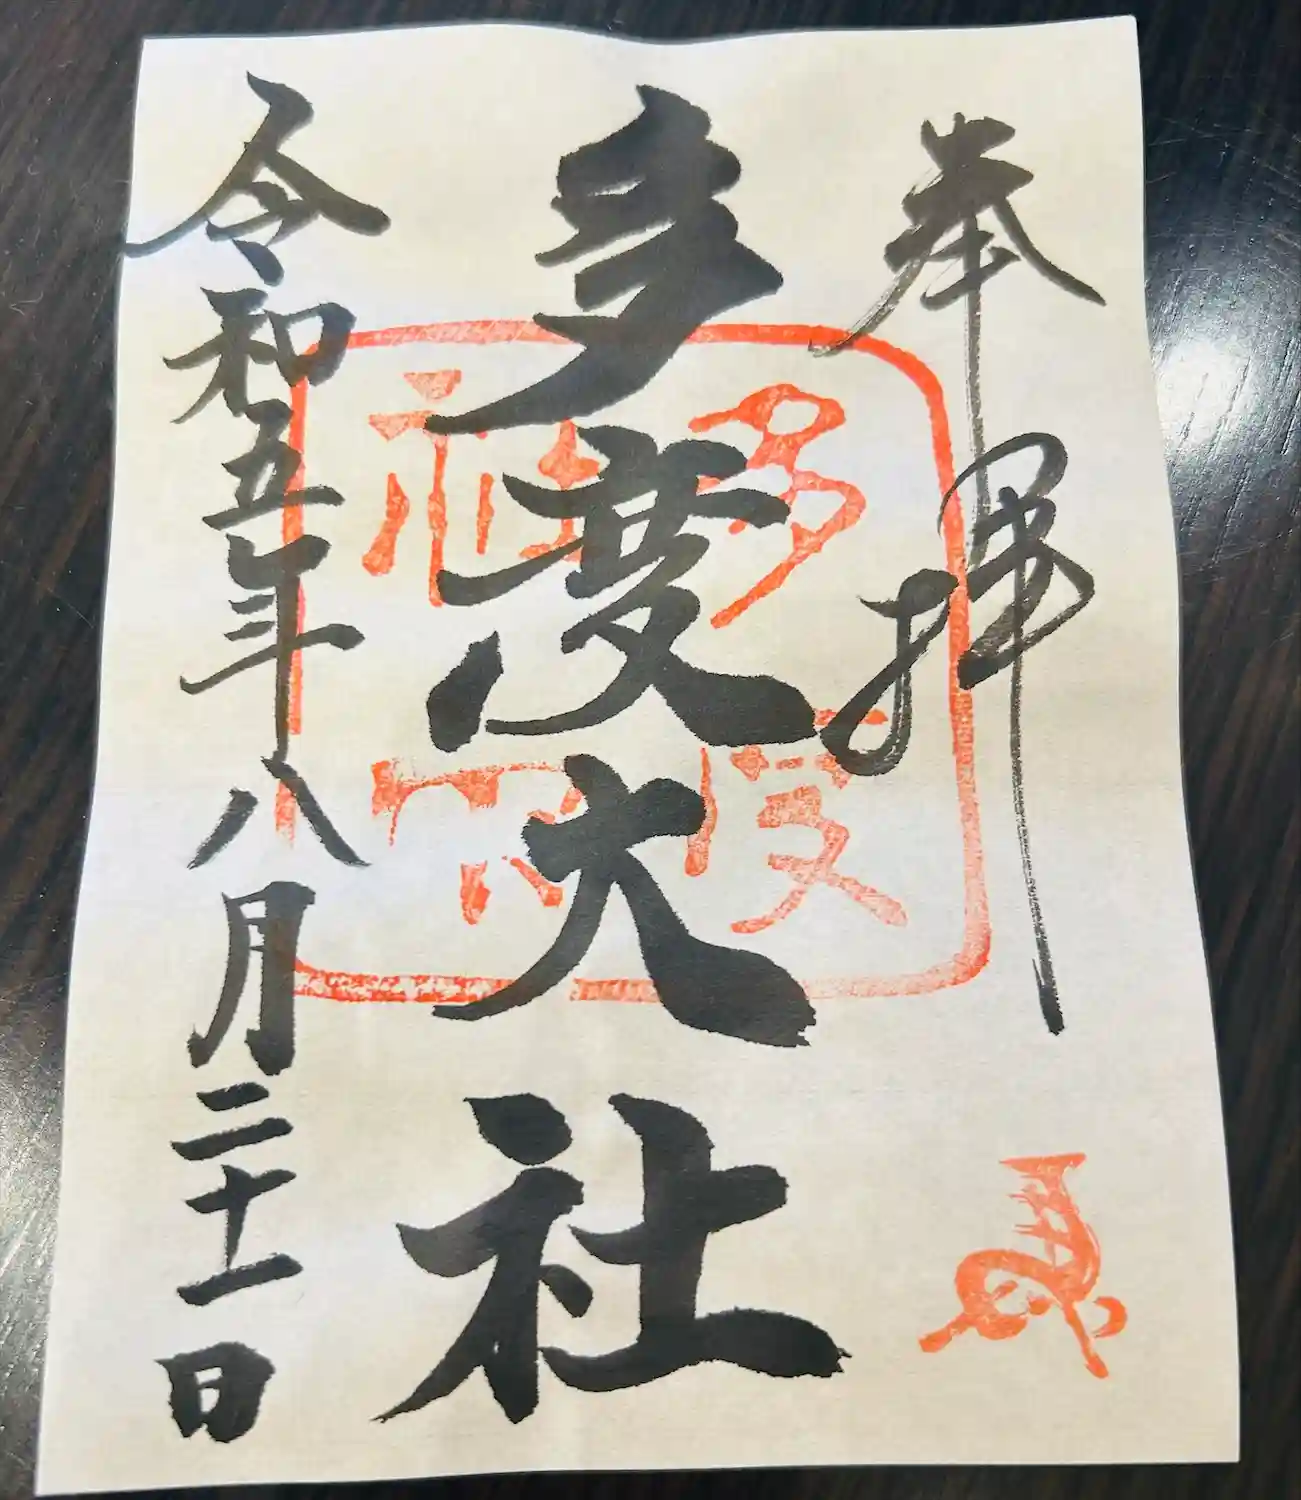 奉拝
多度大社
令和五年八月二十一日
多度
社